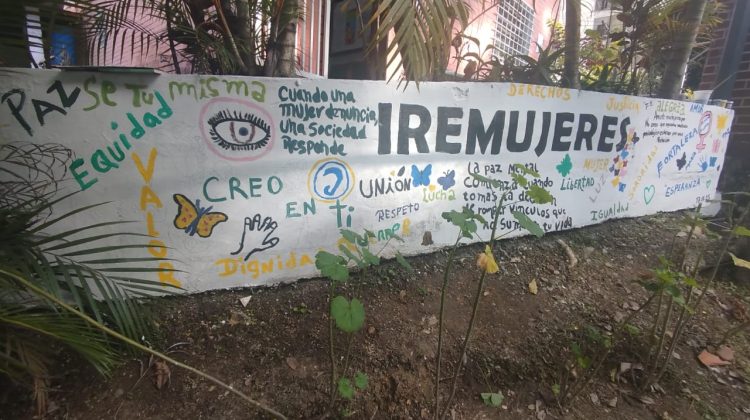 PAZ
Se tu misma
Equidad
VALOR
Cuando una
mujer denuncia,
una sociedad
Responde
CREO
EN Ti
Dignidad
UNIÓN
Lucha
RESPETO
IREMUJERES
DERECHOS
La paz mental
comienza cuando
tomas la decisión
de romper vínculos que
no suman a tu vida
LIBERTAD
MUJER
Igualdad
Justicia
ALEGRÍA
AMOR
FORTALEZA
ESPERANZA